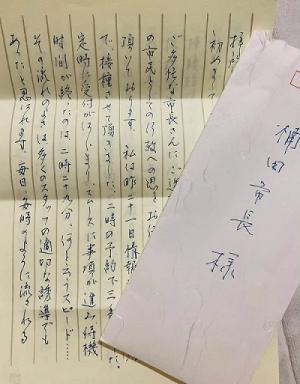 初めまして
ご多忙な市長さんに
の市民としての行政への思
頂いております。私は昨二十一日情報
で、接種させて頂きました。二時の予約で二
定時に受付がはじまりスムースに事項が進み待機
時間が終ったのは二時二十九分、何と云うスピード……
その流れのままは多くのスタッフの適切な誘導でも
あったと思はれます。毎日毎時のように流される
市長 様